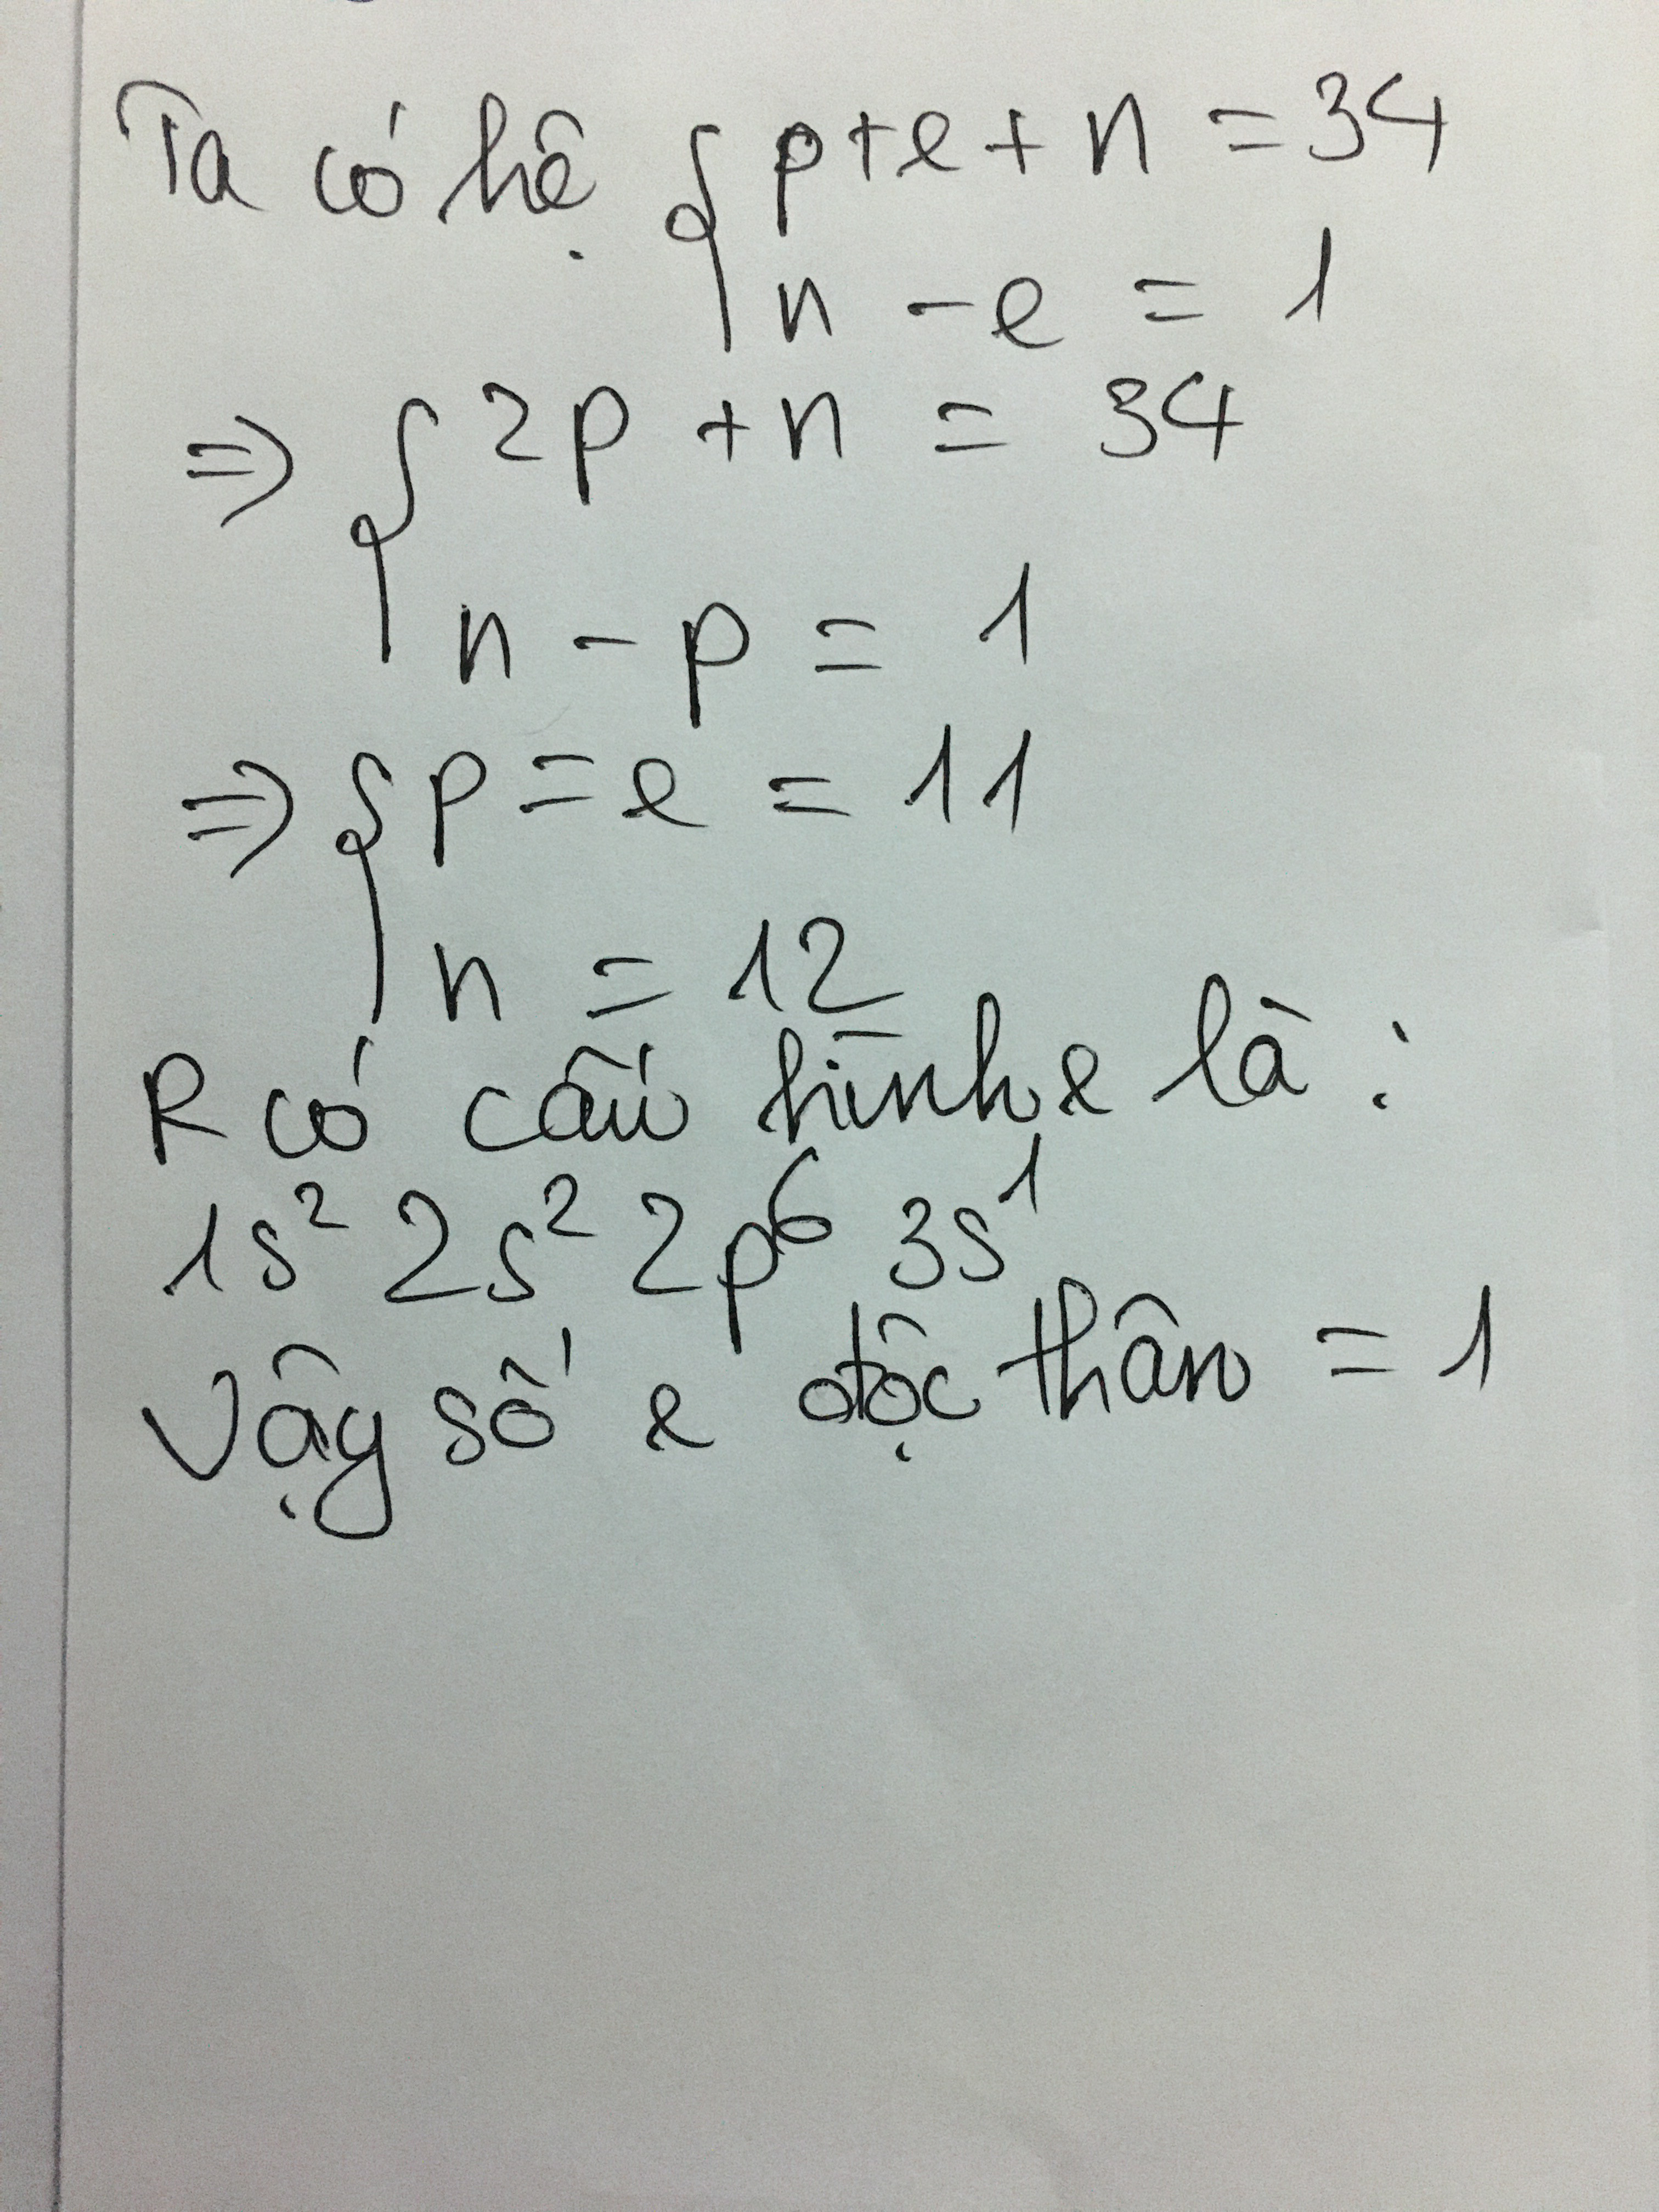 Ta có hệ { p+e+n = 34
n - e = 1
=> { 2p + n = 34
n - p = 1
=> { p = e = 11
n = 12
R có cấu hình e là :
1s² 2s² 2p⁶ 3s¹
Vậy số e độc thân = 1